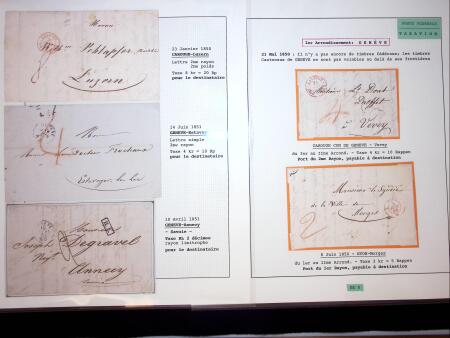 23 Janvier 1850
CAROUGE-Luzern
Lettre 2me rayon
2me poids
Taxe 8 kr = 20 Rp
pour le destinataire
24 Juin 1851
GENEVE-Estavayer
Lettre simple
2me rayon
Taxe 4 kr = 10 Rp
pour le destinataire
10 Avril 1851
GENEVE-Annecy
- Savoie -
Taxe 2 décimes
rayon limitrophe
pour le destinataire
POSTE FEDERALE
TAXATION
1er Arrondissement: GENEVE
21 Mai 1850 : Il n'y a pas encore de timbres fédéraux; les timbres
Cantonaux de GENEVE ne sont pas valables au delà de ses frontières
CAROUGE CON DE GENEVE - Vevey
du 1er au 2me Arrond. - Taxe 4 kr = 10 Rappen
Port du 2me Rayon, payable à destination
6 Juin 1850 - NYON-Morges
du 1er au 2me Arrond. - Taxe 2 kr = 5 Rappen
Port du 1er Rayon, payable à destination
Luzern
Monsieur
Monsieur
Degravel
Annecy
Vevey
Monsieur le Syndic
de la Ville de
Morges